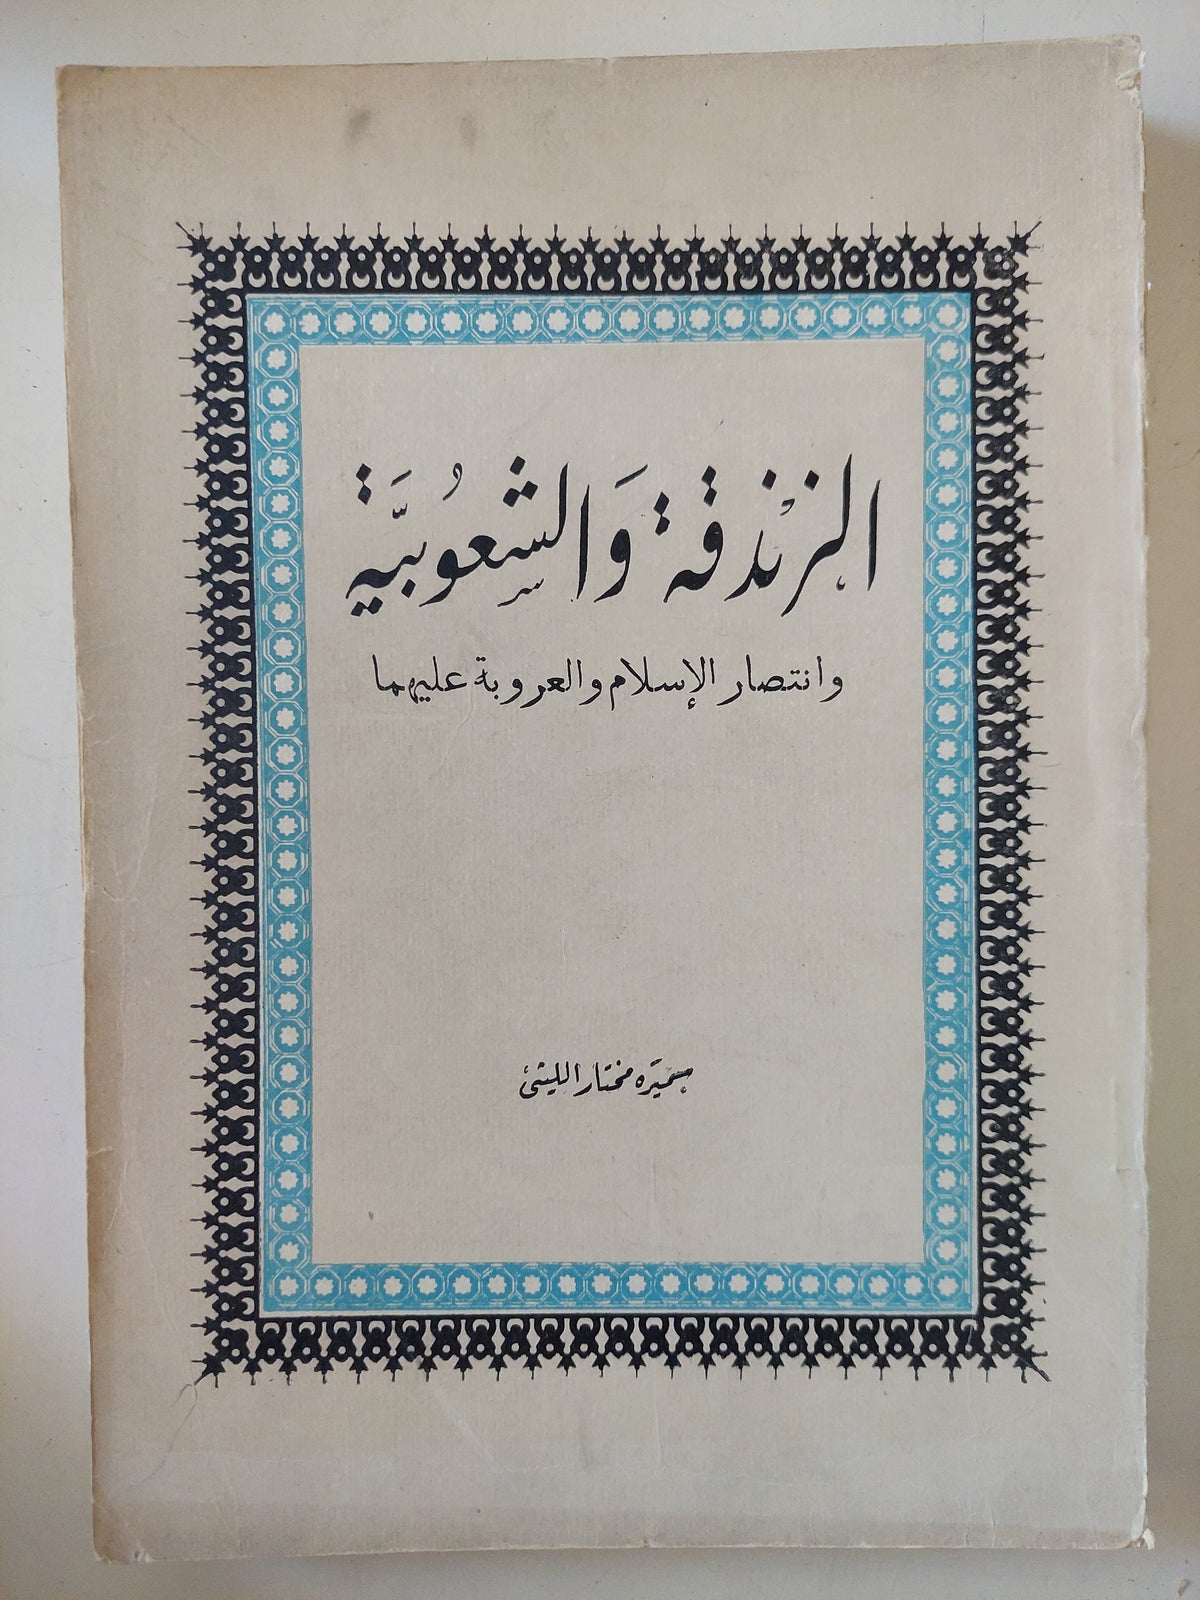 الزنْدقة وَالشِعُوبيَّة
وانتصار الإسلام والعروبة عليهما
سميرة مختار الليثي